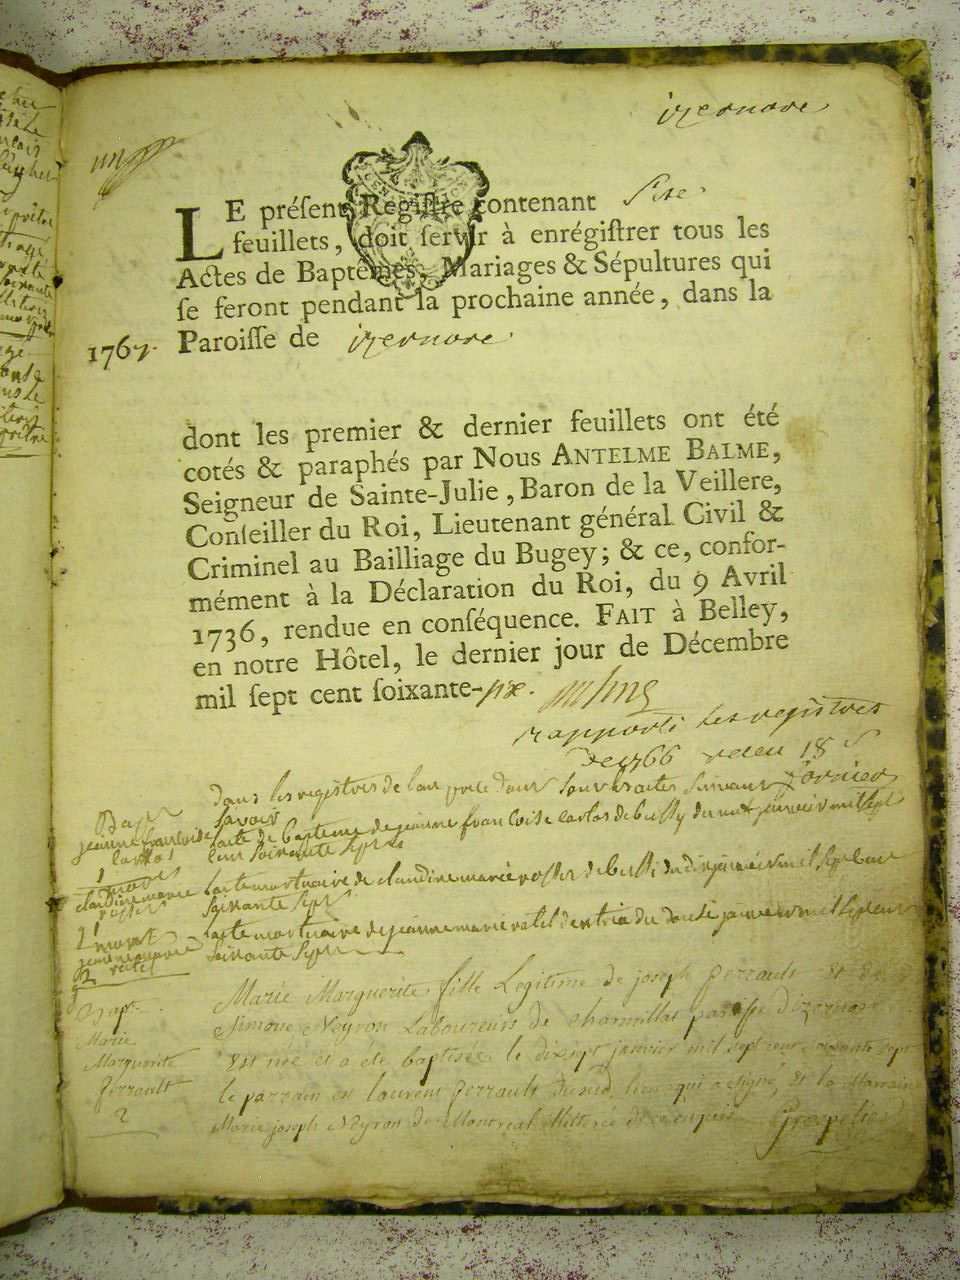 izernore
LE préſent Regiſtre contenant
feuillets, doit ſervir à enrégiſtrer tous les
Actes de Baptêmes, Mariages & Sépultures qui
ſe feront pendant la prochaine année, dans la
1767. Paroiſſe de izernore.
dont les premier & dernier feuillets ont été
cotés & paraphés par Nous ANTELME BALME,
Seigneur de Sainte-Julie, Baron de la Veillere,
Conſeiller du Roi, Lieutenant général Civil &
Criminel au Bailliage du Bugey; & ce, confor-
mément à la Déclaration du Roi, du 9 Avril
1736, rendue en conſéquence. FAIT à Belley,
en notre Hôtel, le dernier jour de Décembre
mil ſept cent ſoixante-six.
rapporté les registres
de 1766 18 s
dans les registres de
savoir
jeanne francoise lacte de bapteme de jeanne francoise carlos de bussy du neuf janvier mil sept
cent soixante sept
claudine marie lacte mortuaire de claudine marie de bussi du janvier mil sept cent
soixante sept
mort lacte mortuaire de jeanne marie du douse janvier mil sept cent
jeanne marie soixante sept
2
Bapt. Marie Marguerite fille Legitime de joseph perrault et de
Marie Simone Neyron Laboureurs de charmillat paroisse d'izernore
Marguerite Est née et a été baptisée le dixsept janvier mil sept cent soixante sept
perrault le parrain est laurent perrault lieu qui a signé, et la Marraine
2 Marie joseph Neyron de Montreal illiterée de enquise